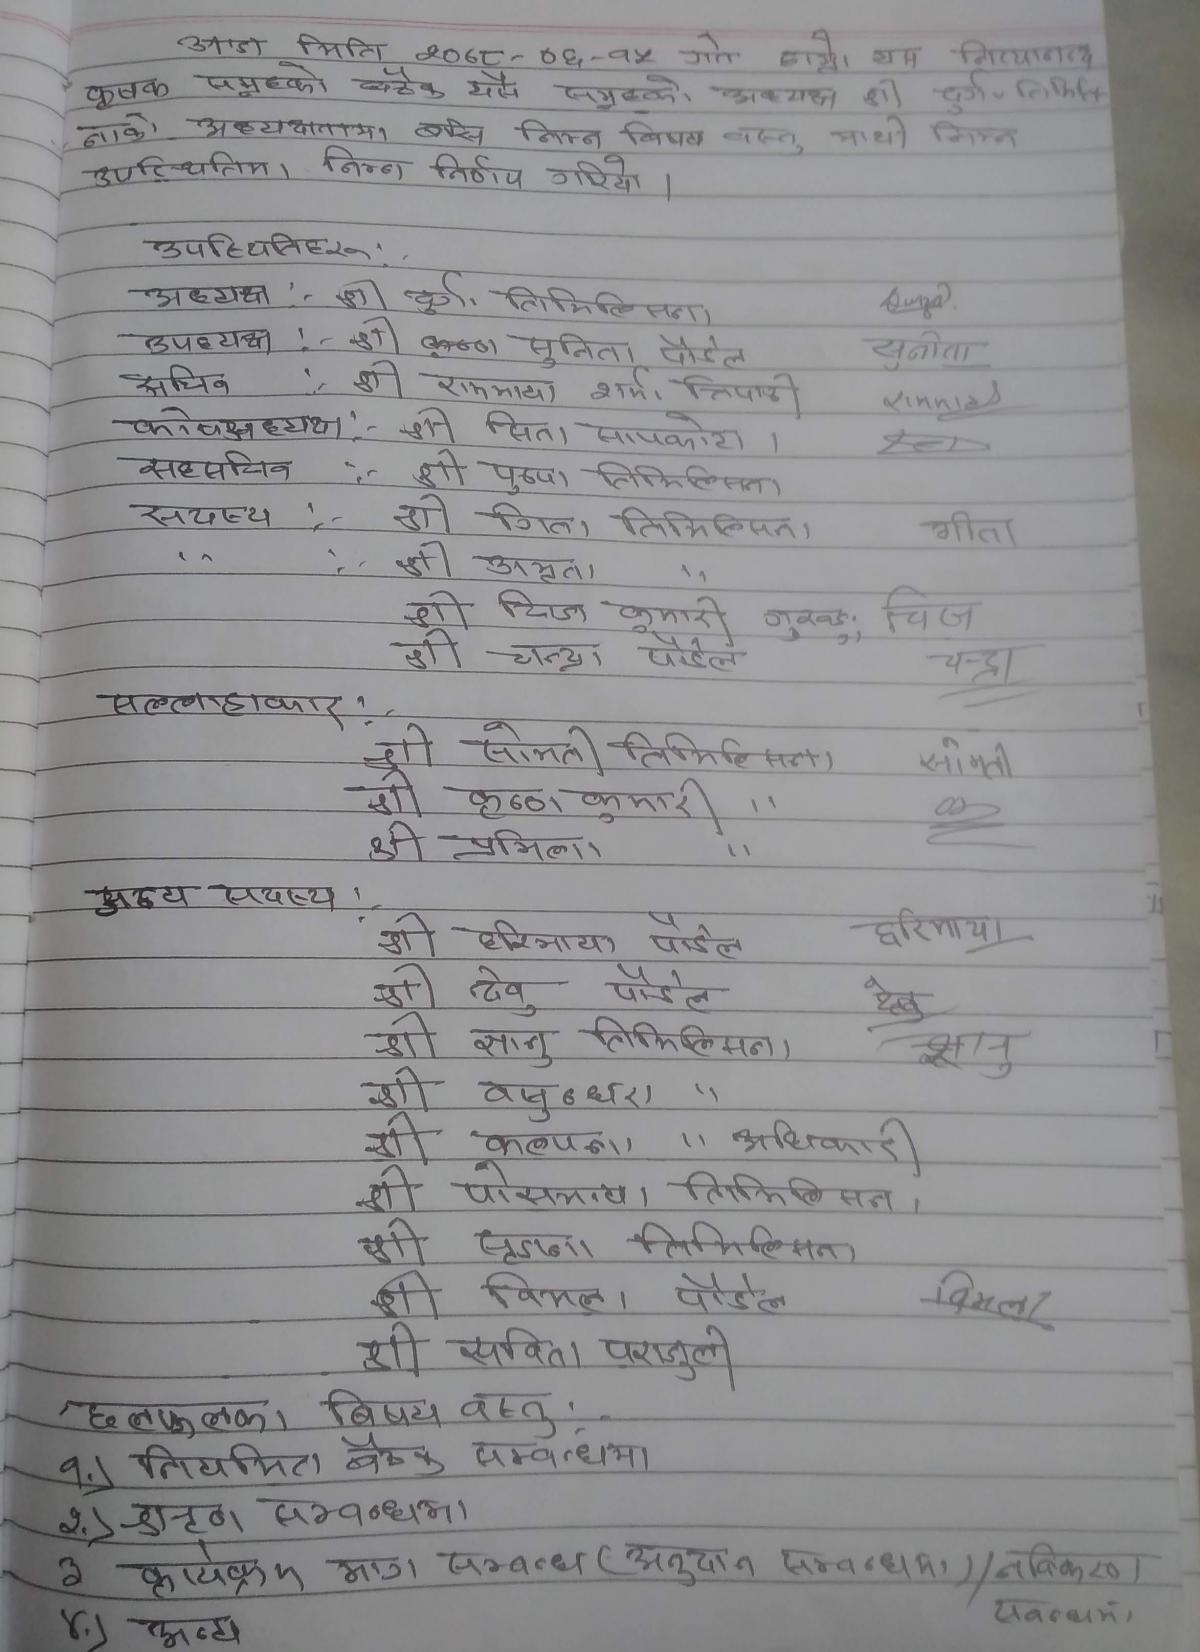 आज मिति २०७८-०६-१५ गते हाम्रो यस नित्यानन्द
कृषक समूहको बैठक यसै समूहको अध्यक्ष श्री दुर्गा तिमिल्सि
नाको अध्यक्षतामा बसि निम्न विषय वस्तु माथी निम्न
उपस्थितिमा निम्न निर्णय गरियो ।
उपस्थितिहरू :-
अध्यक्ष :- श्री दुर्गा तिमिल्सिना
उपध्यक्ष :- श्री सुनिता पौडेल सुनीता
सचिव :- श्री राममाया शर्मा त्रिपाठी राममाया
कोषअध्यक्ष :- श्री सिता सापकोटा ।
सहसचिव :- श्री पुष्पा तिमिल्सिना
सदस्य :- श्री गिता तिमिल्सिना गीता
" :- श्री अमृता "
श्री चिज कुमारी गुरुङ चिज
श्री चन्द्रा पौडेल चन्द्रा
सल्लाहाकार :-
श्री सोमती तिमिल्सिना सोमती
श्री कृष्ण कुमारी "
श्री प्रमिला "
अन्य सदस्य :-
श्री हरिमाया पौडेल हरिमाया
श्री देवु पौडेल देवु
श्री सानु तिमिल्सिना सानु
श्री वसुन्धरा "
श्री कल्पना " अधिकारी
श्री पोसमाया तिमिल्सिना
श्री सृजना तिमिल्सिना
श्री विमला पौडेल विमला
श्री सविता पराजुली
छलफलका बिषय वस्तु :-
१.) नियमित बैठक सम्बन्धमा
२.) ऋण सम्बन्धमा
३ कार्यक्रम माग सम्बन्ध (अनुदान सम्बन्धमा) / नविकरण
सम्बन्धमा
४.) अन्य